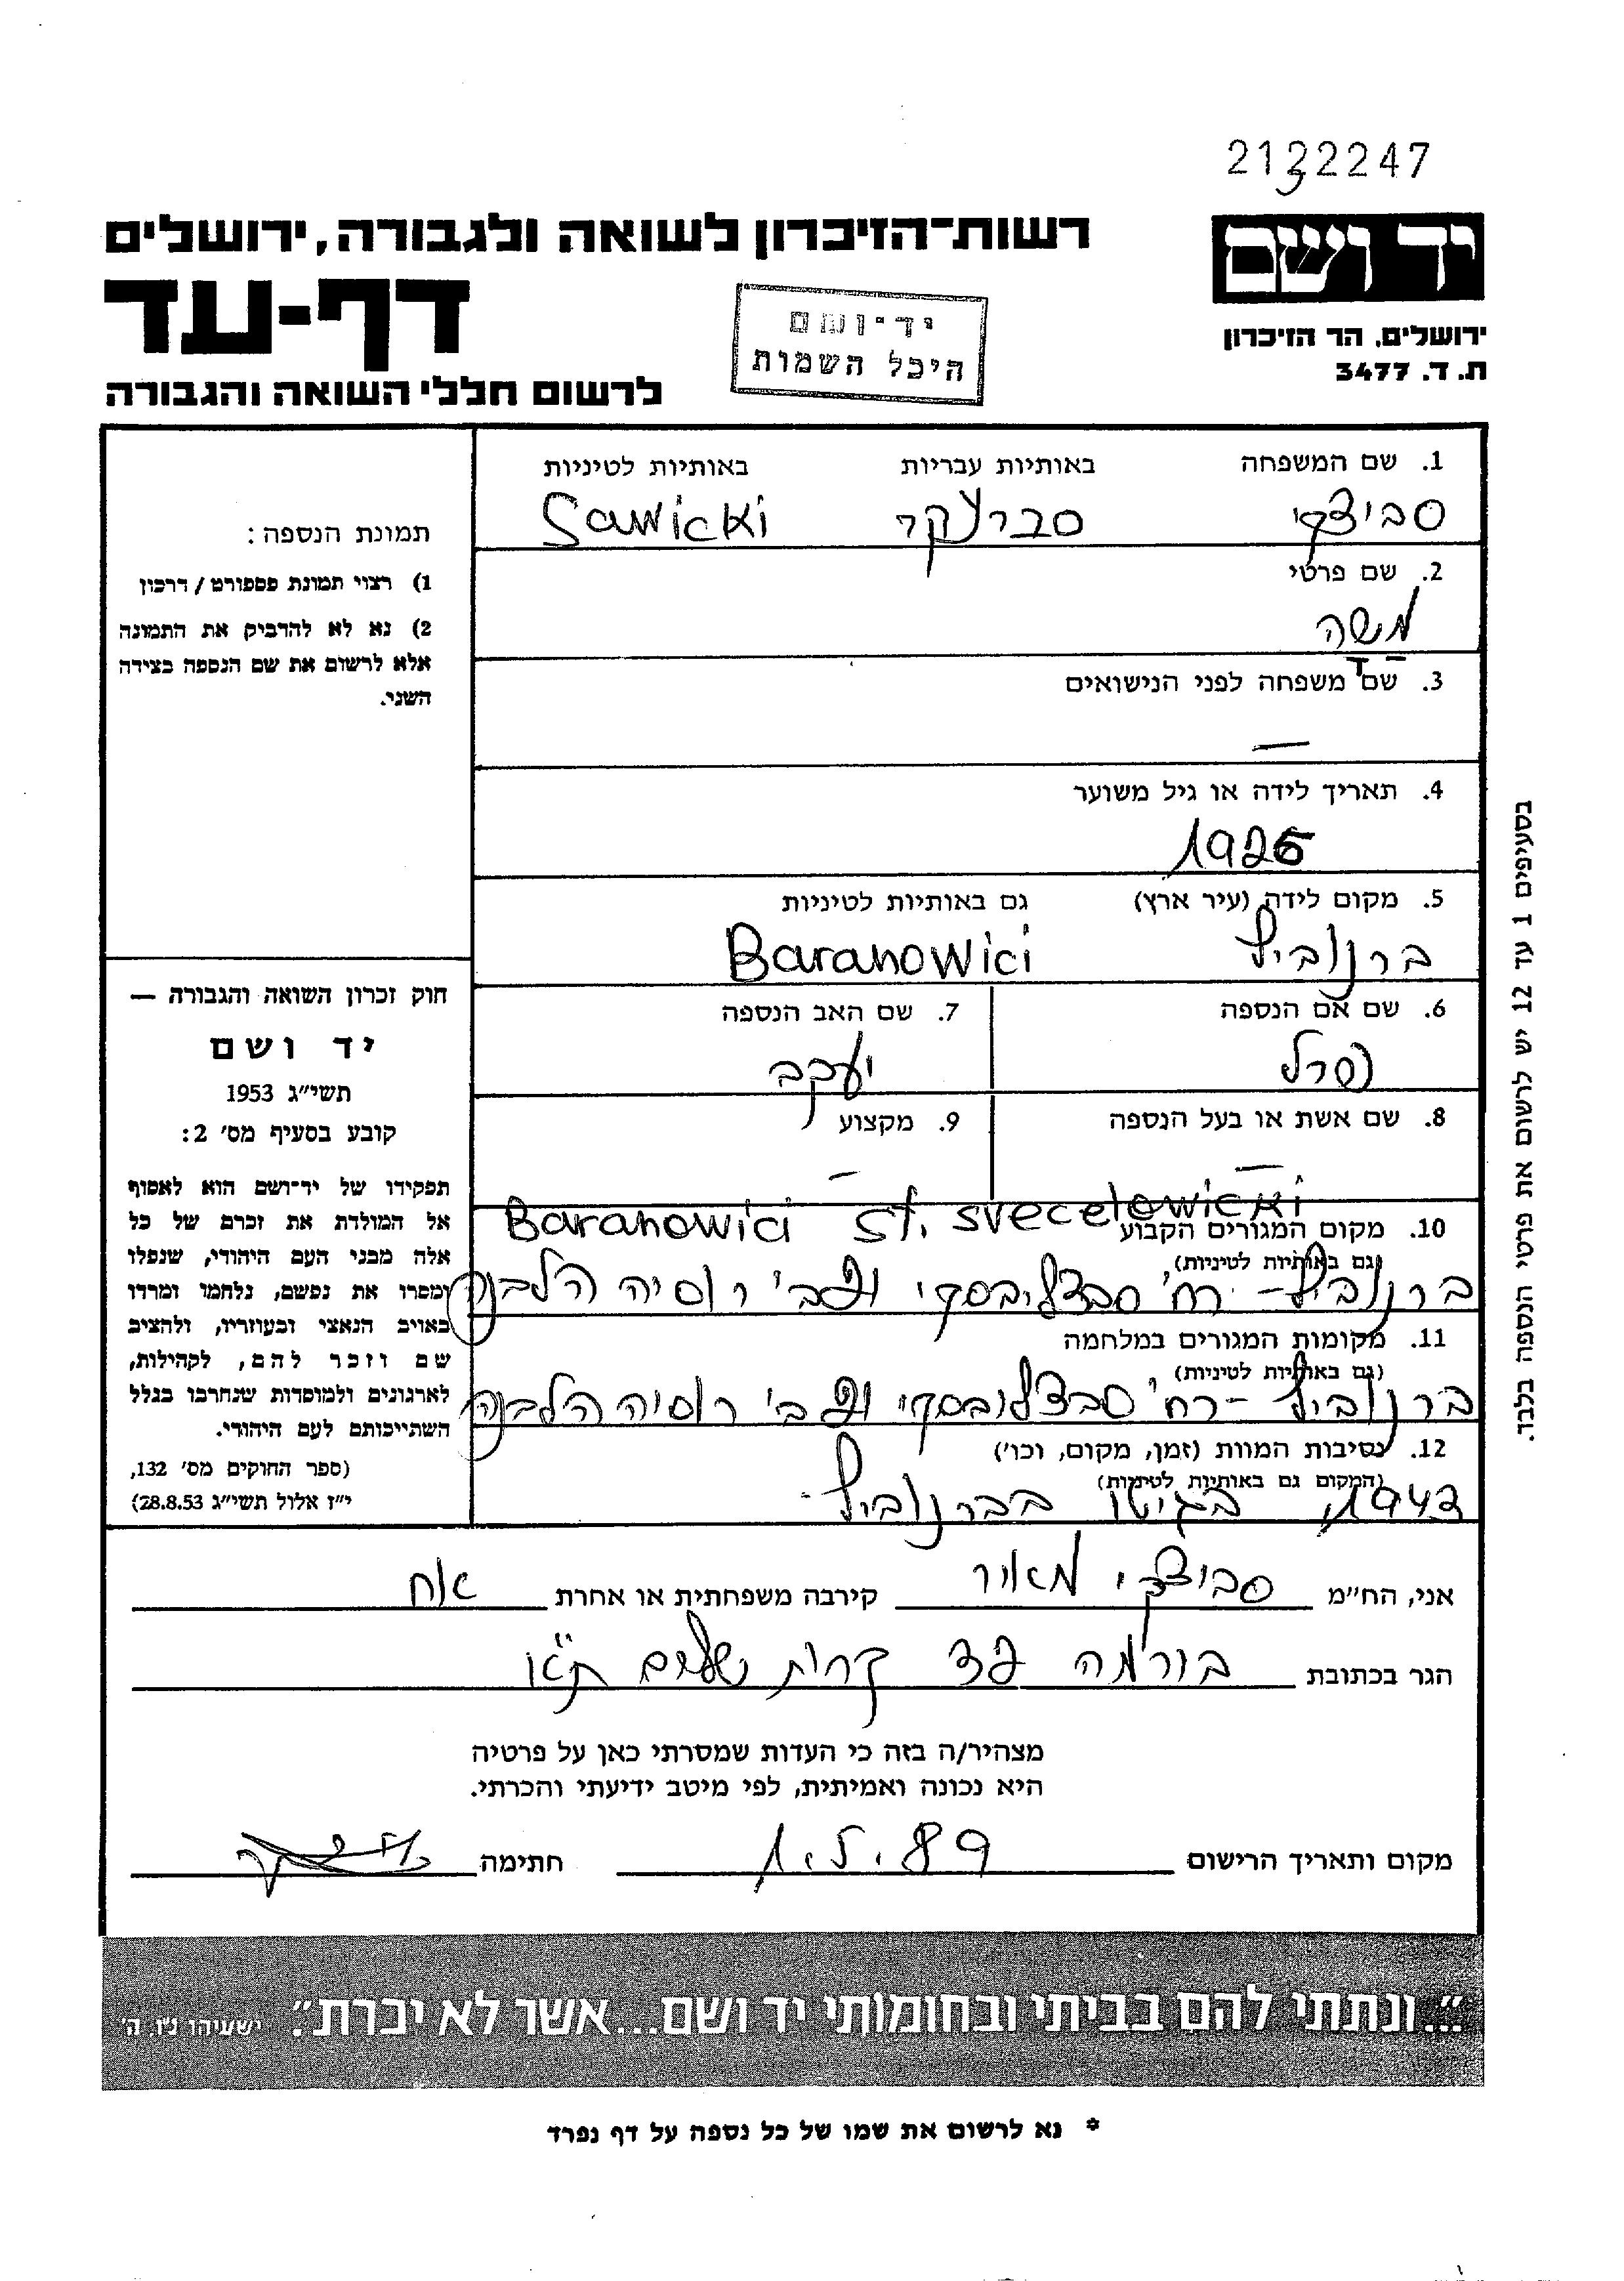 2132247
יד ושם
רשות־הזיכרון לשואה ולגבורה, ירושלים
דף-עד
יד־ושם
היכל השמות
ירושלים, הר הזיכרון
ת. ד. 3477
לרשום חללי השואה והגבורה
1. שם המשפחה באותיות עבריות באותיות לטיניות
סביצקי Sawicki
2. שם פרטי
משה
3. שם משפחה לפני הנישואים
—
4. תאריך לידה או גיל משוער
1926
5. מקום לידה (עיר ארץ) גם באותיות לטיניות
ברנוביץ Baranowici
6. שם אם הנספה 7. שם האב הנספה
יעקב
8. שם אשת או בעל הנספה 9. מקצוע
— —
Baranowici st. svecelowicki
10. מקום המגורים הקבוע
(גם באותיות לטיניות)
ברנוביץ - רח' רוסיה הלבנה
11. מקומות המגורים במלחמה
(גם באותיות לטיניות)
ברנוביץ - רח' רוסיה הלבנה
12. נסיבות המוות (זמן, מקום, וכו')
(המקום גם באותיות לטיניות)
1943 בגיטו בברנוביץ
תמונת הנספה:
1) רצוי תמונת פספורט / דרכון
2) נא לא להדביק את התמונה
אלא לרשום את שם הנספה בצידה
השני.
חוק זכרון השואה והגבורה —
יד ושם
תשי״ג 1953
קובע בסעיף מס׳ 2:
תפקידו של יד־ושם הוא לאסוף
אל המולדת את זכרם של כל
אלה מבני העם היהודי, שנפלו
ומסרו את נפשם, נלחמו ומרדו
באויב הנאצי ובעוזריו, ולהציב
שם וזכר להם, לקהילות,
לארגונים ולמוסדות שנחרבו בגלל
השתייכותם לעם היהודי.
(ספר החוקים מס׳ 132,
י״ז אלול תשי״ג 28.8.53)
בסעיפים 1 עד 12 יש לרשום את פרטי הנספה בלבד.
אני, הח״מ סביצקי מאיר קירבה משפחתית או אחרת אח
הגר בכתובת בורמה קרית שלום ת"א
מצהיר/ה בזה כי העדות שמסרתי כאן על פרטיה
היא נכונה ואמיתית, לפי מיטב ידיעתי והכרתי.
מקום ותאריך הרישום 1.5.89 חתימה
״...ונתתי להם בביתי ובחומותי יד ושם...אשר לא יכרת״. ישעיהו נ״ו, ה׳
* נא לרשום את שמו של כל נספה על דף נפרד